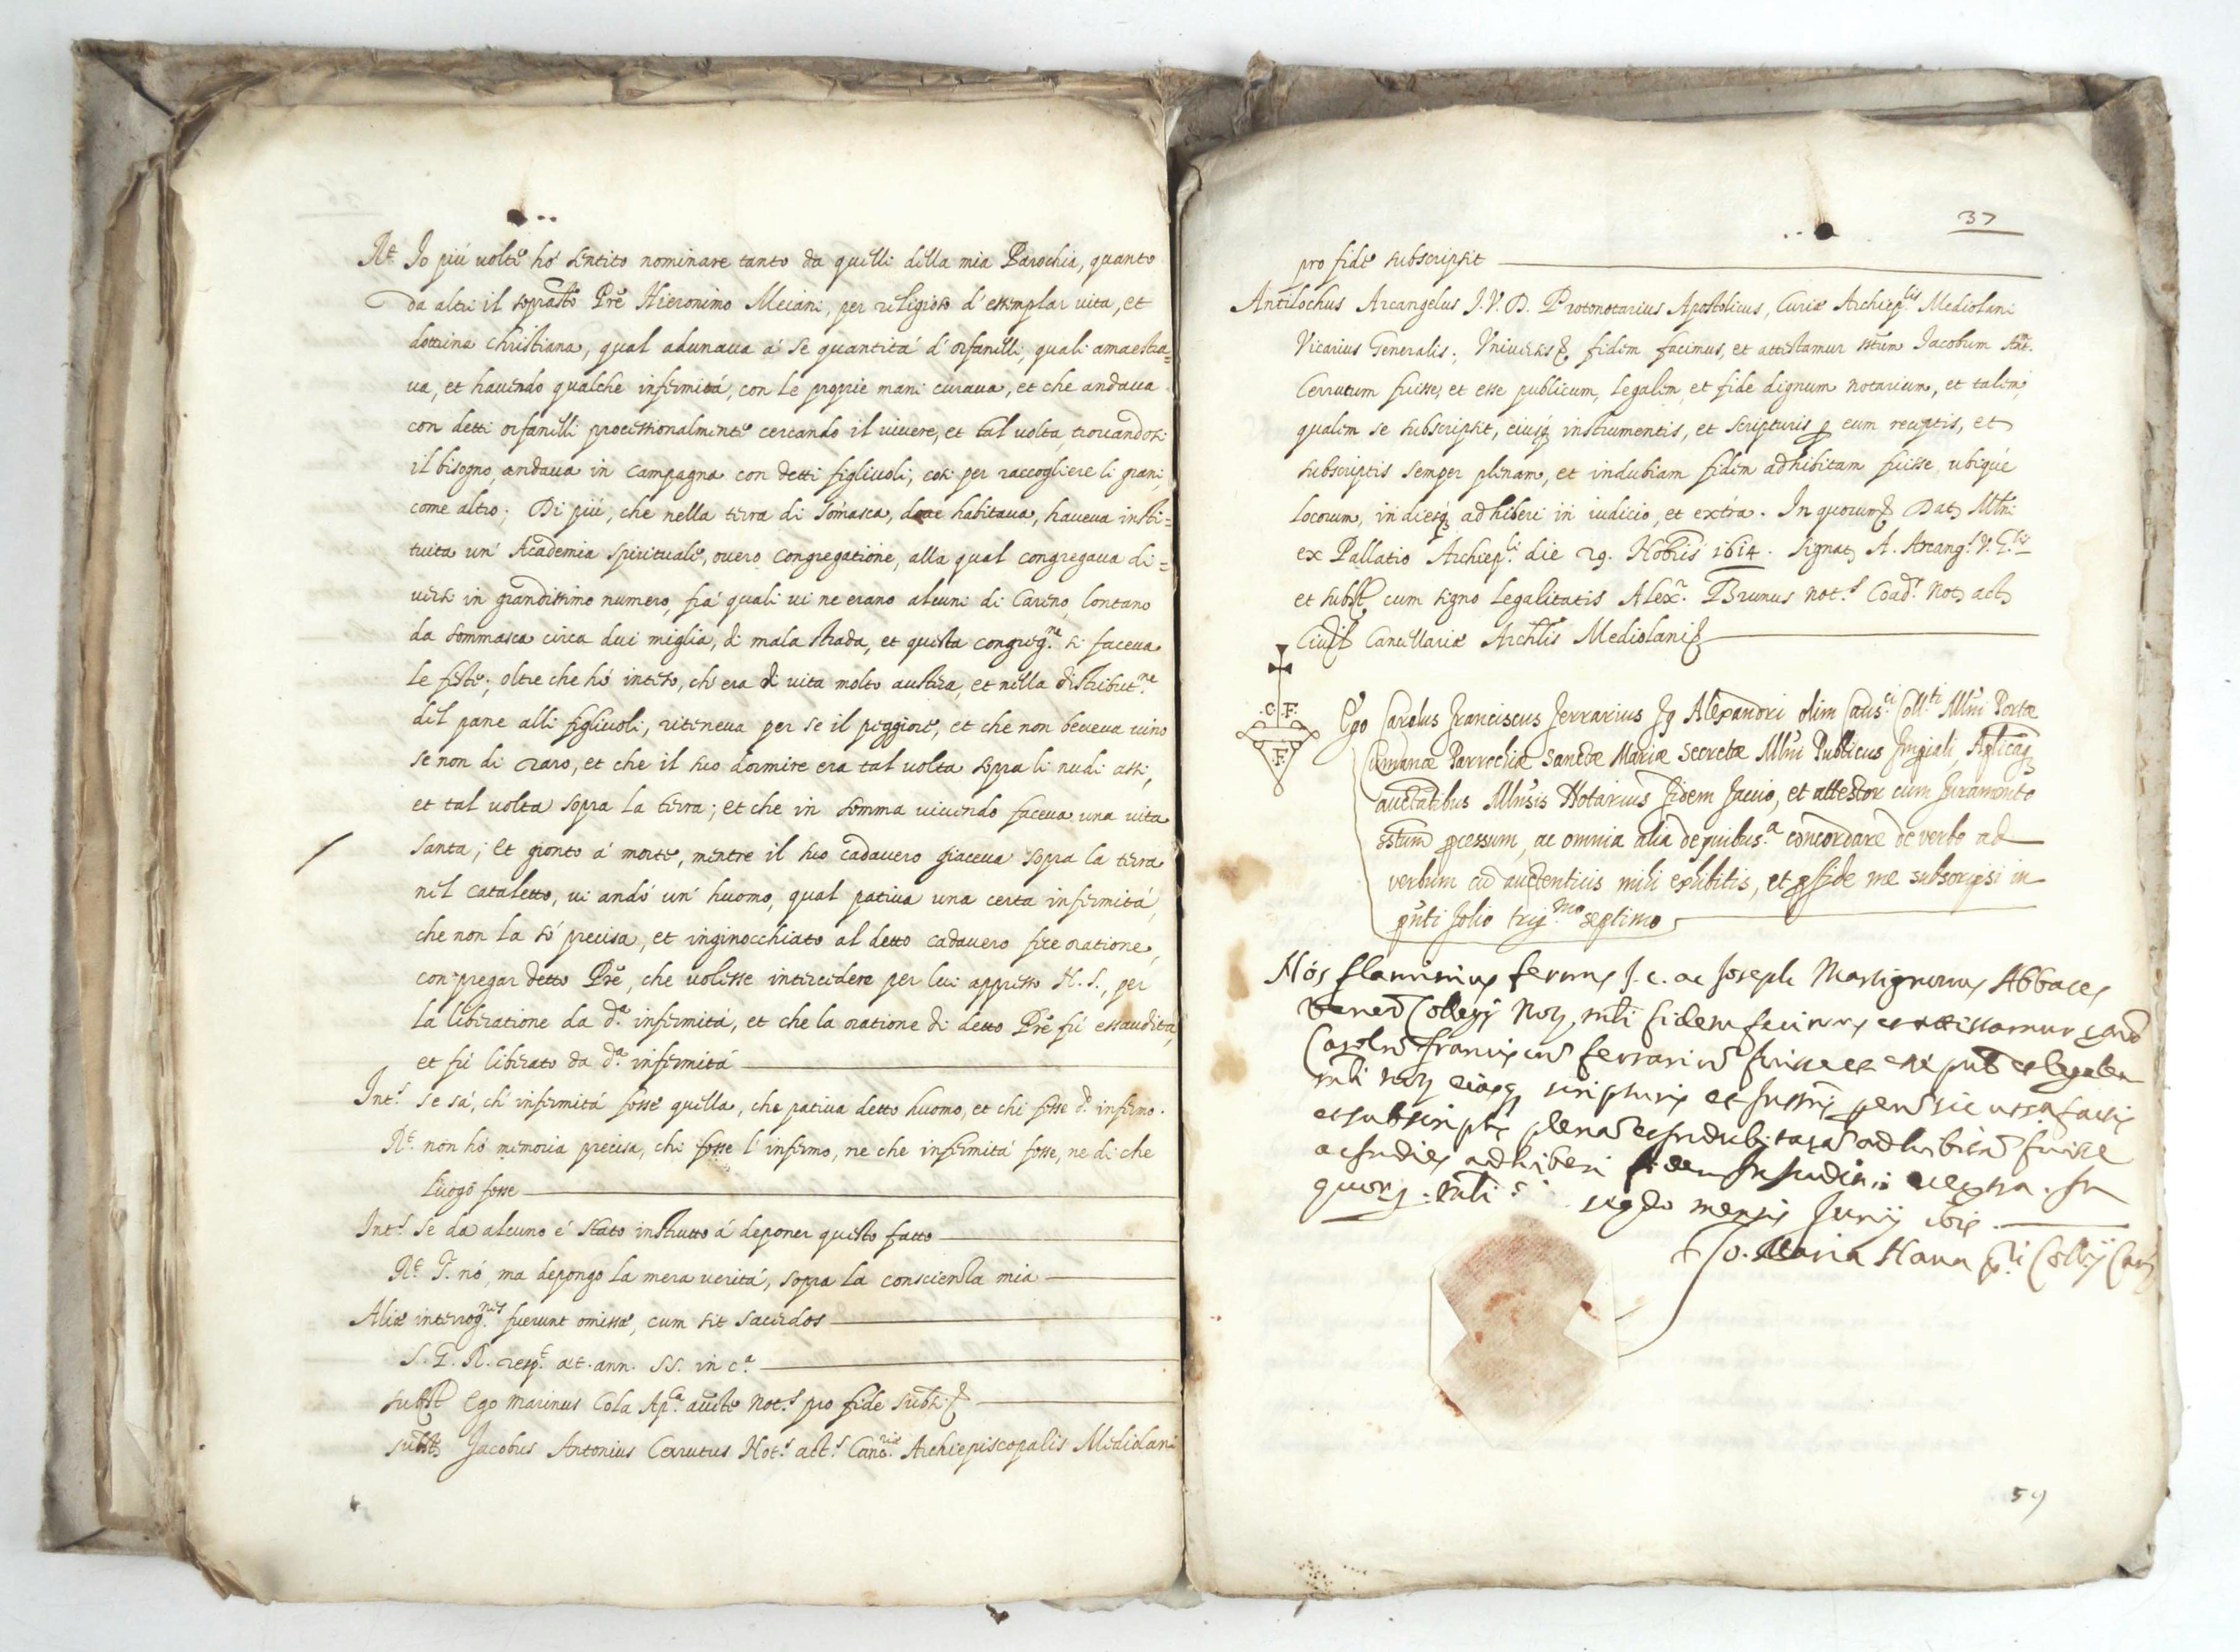 R.e Io più uolte hò sentito nominare tanto da quelli della mia Parochia, quanto
da altri il sopradtto Prē Hieronimo Meiani, per religioso d'essemplar uita, et
dottrina Christiana, qual adunaua à se quantità d'orfanelli, quali amaestra=
ua, et hauendo qualche infermità, con le proprie mani curaua, et che andaua
con detti orfanelli processionalmente cercando il uiuere, et tal uolta, trouandosi
il bisogno, andaua in campagna con detti figliuoli, cosi per raccogliere li grani,
come altro; Di più, che nella terra di Sómasca, doue habitaua, haueua insti=
tuita un' Academia spirituale, ouero congregatione, alla qual congregaua di=
uersi in grandissimo numero, frà quali ui ne erano alcuni di Careno, lontano
da sommasca circa dui miglia, di mala strada, et questa congreg.ne si faceua
le feste; oltre che hò inteso, ch'era di uita molto austera, et nella distribut.ne
del pane alli figliuoli, riteneua per se il peggiore, et che non beueua uino
se non di raro, et che il suo dormire era tal uolta sopra li nudi assi,
et tal uolta sopra la terra; et che in somma uiuendo faceua una uita
santa; et gionto à morte, mentre il suo cadauero giaceua sopra la terra
nel cataletto, ui andò un' huomo, qual patiua una certa infermità,
che non la sò precisa, et inginocchiato al detto cadauero fece oratione,
con pregar detto Prē, che uolesse intercedere per lui appresso N. S., per
la liberatione da d.a infermità, et che la oratione di detto Prē fù essaudita,
et fù liberato da d.a infermità
Int.s se sà, ch' infermità fosse quella, che patiua detto huomo, et chi fosse d.o infermo.
R.e non hò memoria precisa, chi fosse l'infermo, ne che infermità fosse, ne di che
luogo fosse
Int.s se da alcuno è stato instrutto à deponer questo fatto
R.e S.r nò, ma depongo la mera uerità, sopra la conscienza mia
Aliæ interrog.nes fuerunt omissæ, cum sit sacerdos
S. G. R. resp.t æt. ann. 55. in c.a
subst Ego Marinus Cola Ap.ca aucte Not.s pro fide subs.
subst Jacobus Antonius Cerrutus Not.s act.s Canc.riæ Archiepiscopalis Mediolani
37
pro fide subscripsit
Antilochus Arcangelus J. V. D. Protonotarius Apostolicus, Curiæ Archiep.lis Mediolani
Vicarius Generalis; Vniuersis, fidem facimus, et attestamur sstum Jacobum Ant.
Cerrutum fuisse, et esse publicum, legalem, et fide dignum notarium, et talem,
qualem se subscripsit, eiusq instrumentis, et scripturis p eum receptis, et
subscriptis semper plenam, et indubiam fidem adhibitam fuisse, ubique
locorum, in diesq adhiberi in iudicio, et extra. In quorum Dat Mlni
ex Pallatio Archiep.li die 29. Nobris 1614. signat A. Arcang.s V. G.lis
et subst cum signo legalitatis Alex.r Brunus not.s Coad.r Not act
Ciuil Cancellariæ Archlis Mediolani
.C F.
.F.
Ego Carolus Franciscus Ferrarius fq Alexandri olim Caus.ci Coll.ti Mlni Portæ
Cumanæ Parrochiæ Sanctæ Mariæ Secretæ Mlni Publicus Impiali, Aplicaq
auctatibus Mlnsis Notarius fidem facio, et attestor cum Juramento
sstum pcessum, ac omnia alia de quibus s.a concordare de verbo ad
verbum cū auctenticis mihi exhibitis, et p fide me subscripsi in
pnti folio trig.mo septimo
Nos Flaminius ferrus J. c. ac Joseph Martignonus Abbates
Vener Collegij Noz mli fidem facimus et attestamur
Carolū franciscū ferrariū fuisse et esse pub et legalem
mli noz eiusq scripturis et Instris p eum sic ut sa factis
et subscriptis plenā et Indubitatā adhibitā fuisse
ac Indies adhiberi fidem In Iudicio et extra. In
quorz. mli mensis Junij
Jo. Maria p.ti Collij Canc
59